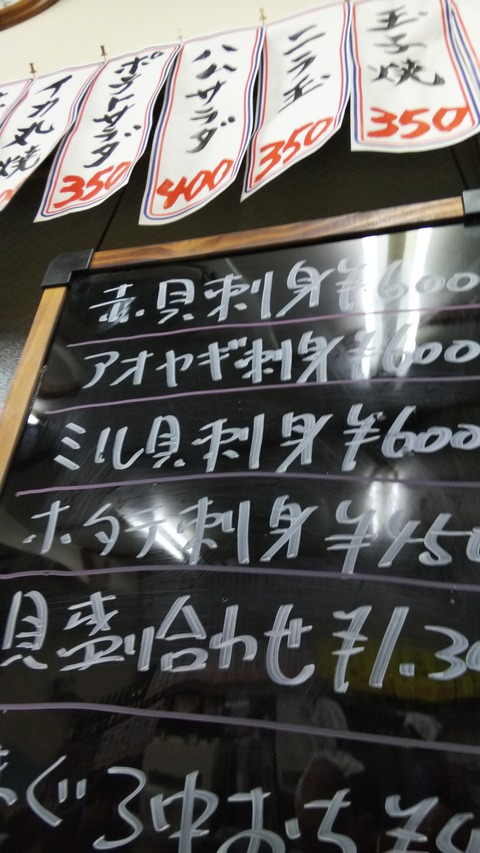 玉子焼
350
ニラ玉
350
ハムサラダ
400
ポテトサラダ
350
イカ丸焼
赤貝刺身¥600
アオヤギ刺身¥600
ミル貝刺身¥600
ホタテ刺身¥450
貝盛り合わせ¥1.30
まぐろ中おち¥